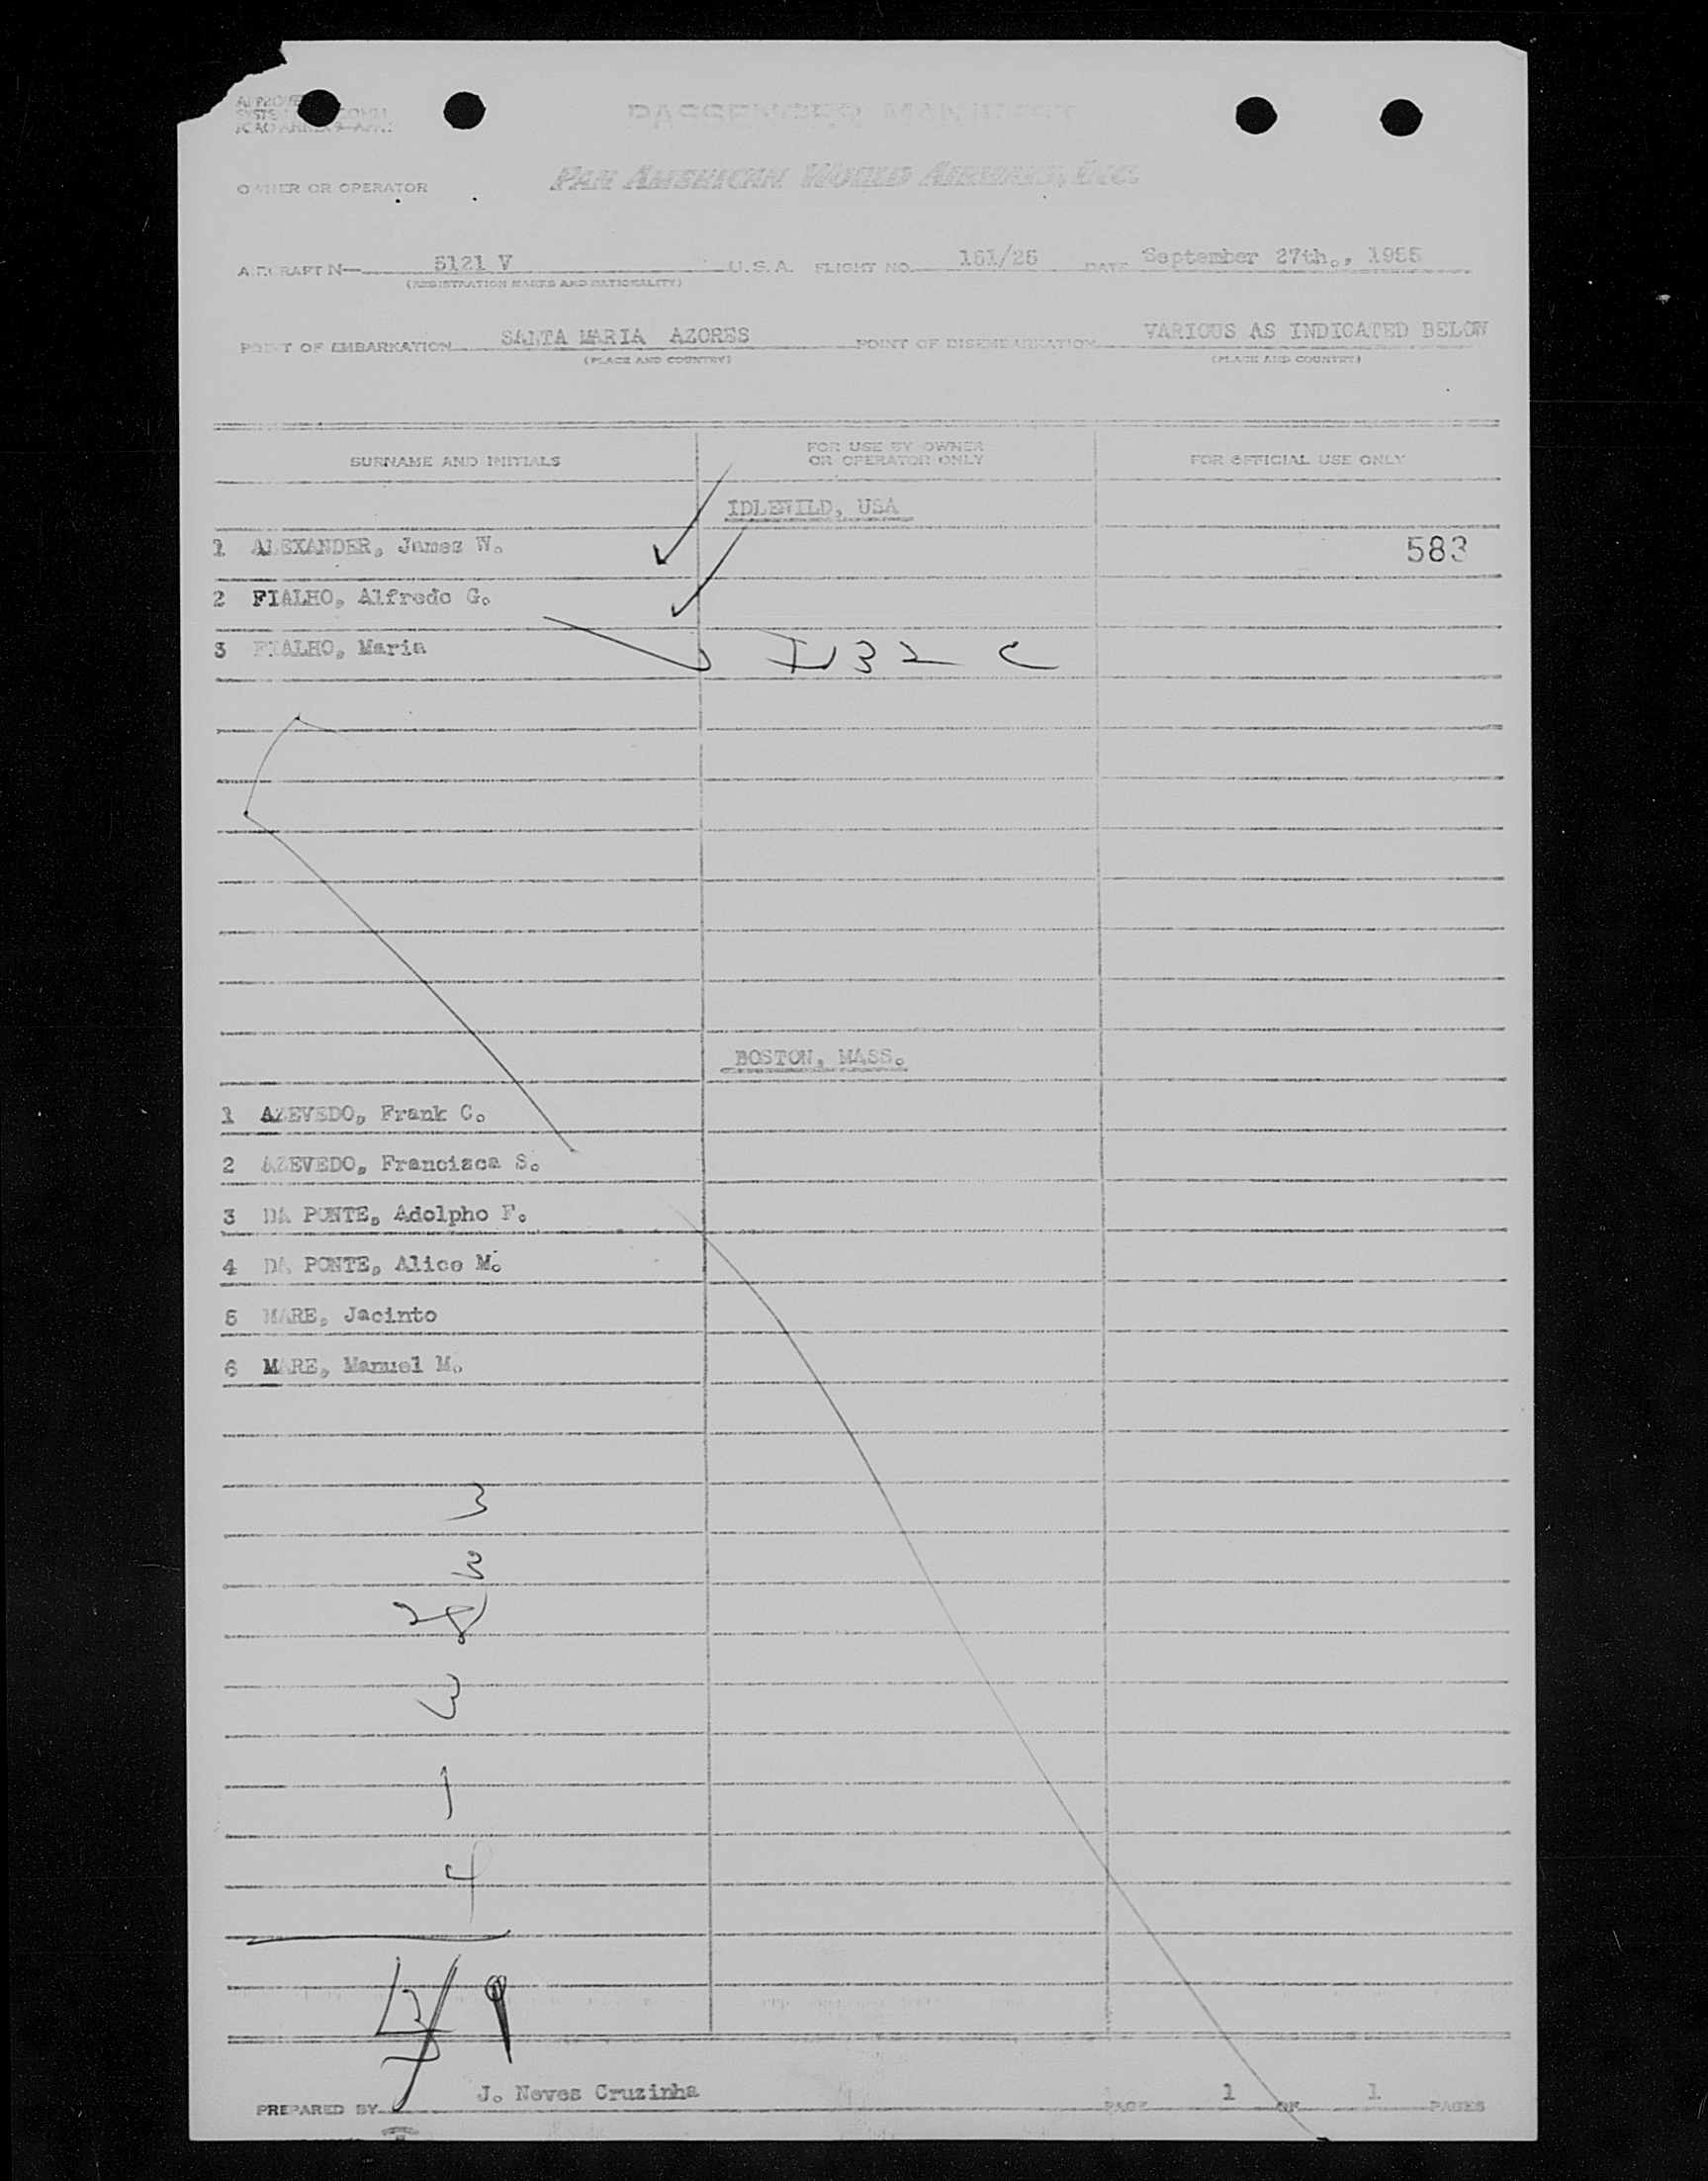 PASSENGER MANIFEST
PAN AMERICAN WORLD AIRWAYS, INC.
OWNER OR OPERATOR
AIRCRAFT N— 5121 V U.S.A. FLIGHT NO. 161/26 DATE September 27th., 1955
(REGISTRATION MARKS AND NATIONALITY)
POINT OF EMBARKATION SANTA MARIA AZORES POINT OF DISEMBARKATION VARIOUS AS INDICATED BELOW
(PLACE AND COUNTRY) (PLACE AND COUNTRY)
SURNAME AND INITIALS FOR USE BY OWNER OR OPERATOR ONLY FOR OFFICIAL USE ONLY
IDLEWILD, USA
1 ALEXANDER, James W. 583
2 FIALHO, Alfredo G.
3 FIALHO, Maria
BOSTON, MASS.
1 AZEVEDO, Frank C.
2 AZEVEDO, Francisca S.
3 DA PONTE, Adolpho F.
4 DA PONTE, Alice M.
5 MARE, Jacinto
6 MARE, Manuel M.
3
3
1
4
9
PREPARED BY J. Neves Cruzinha PAGE 1 OF 1 PAGES